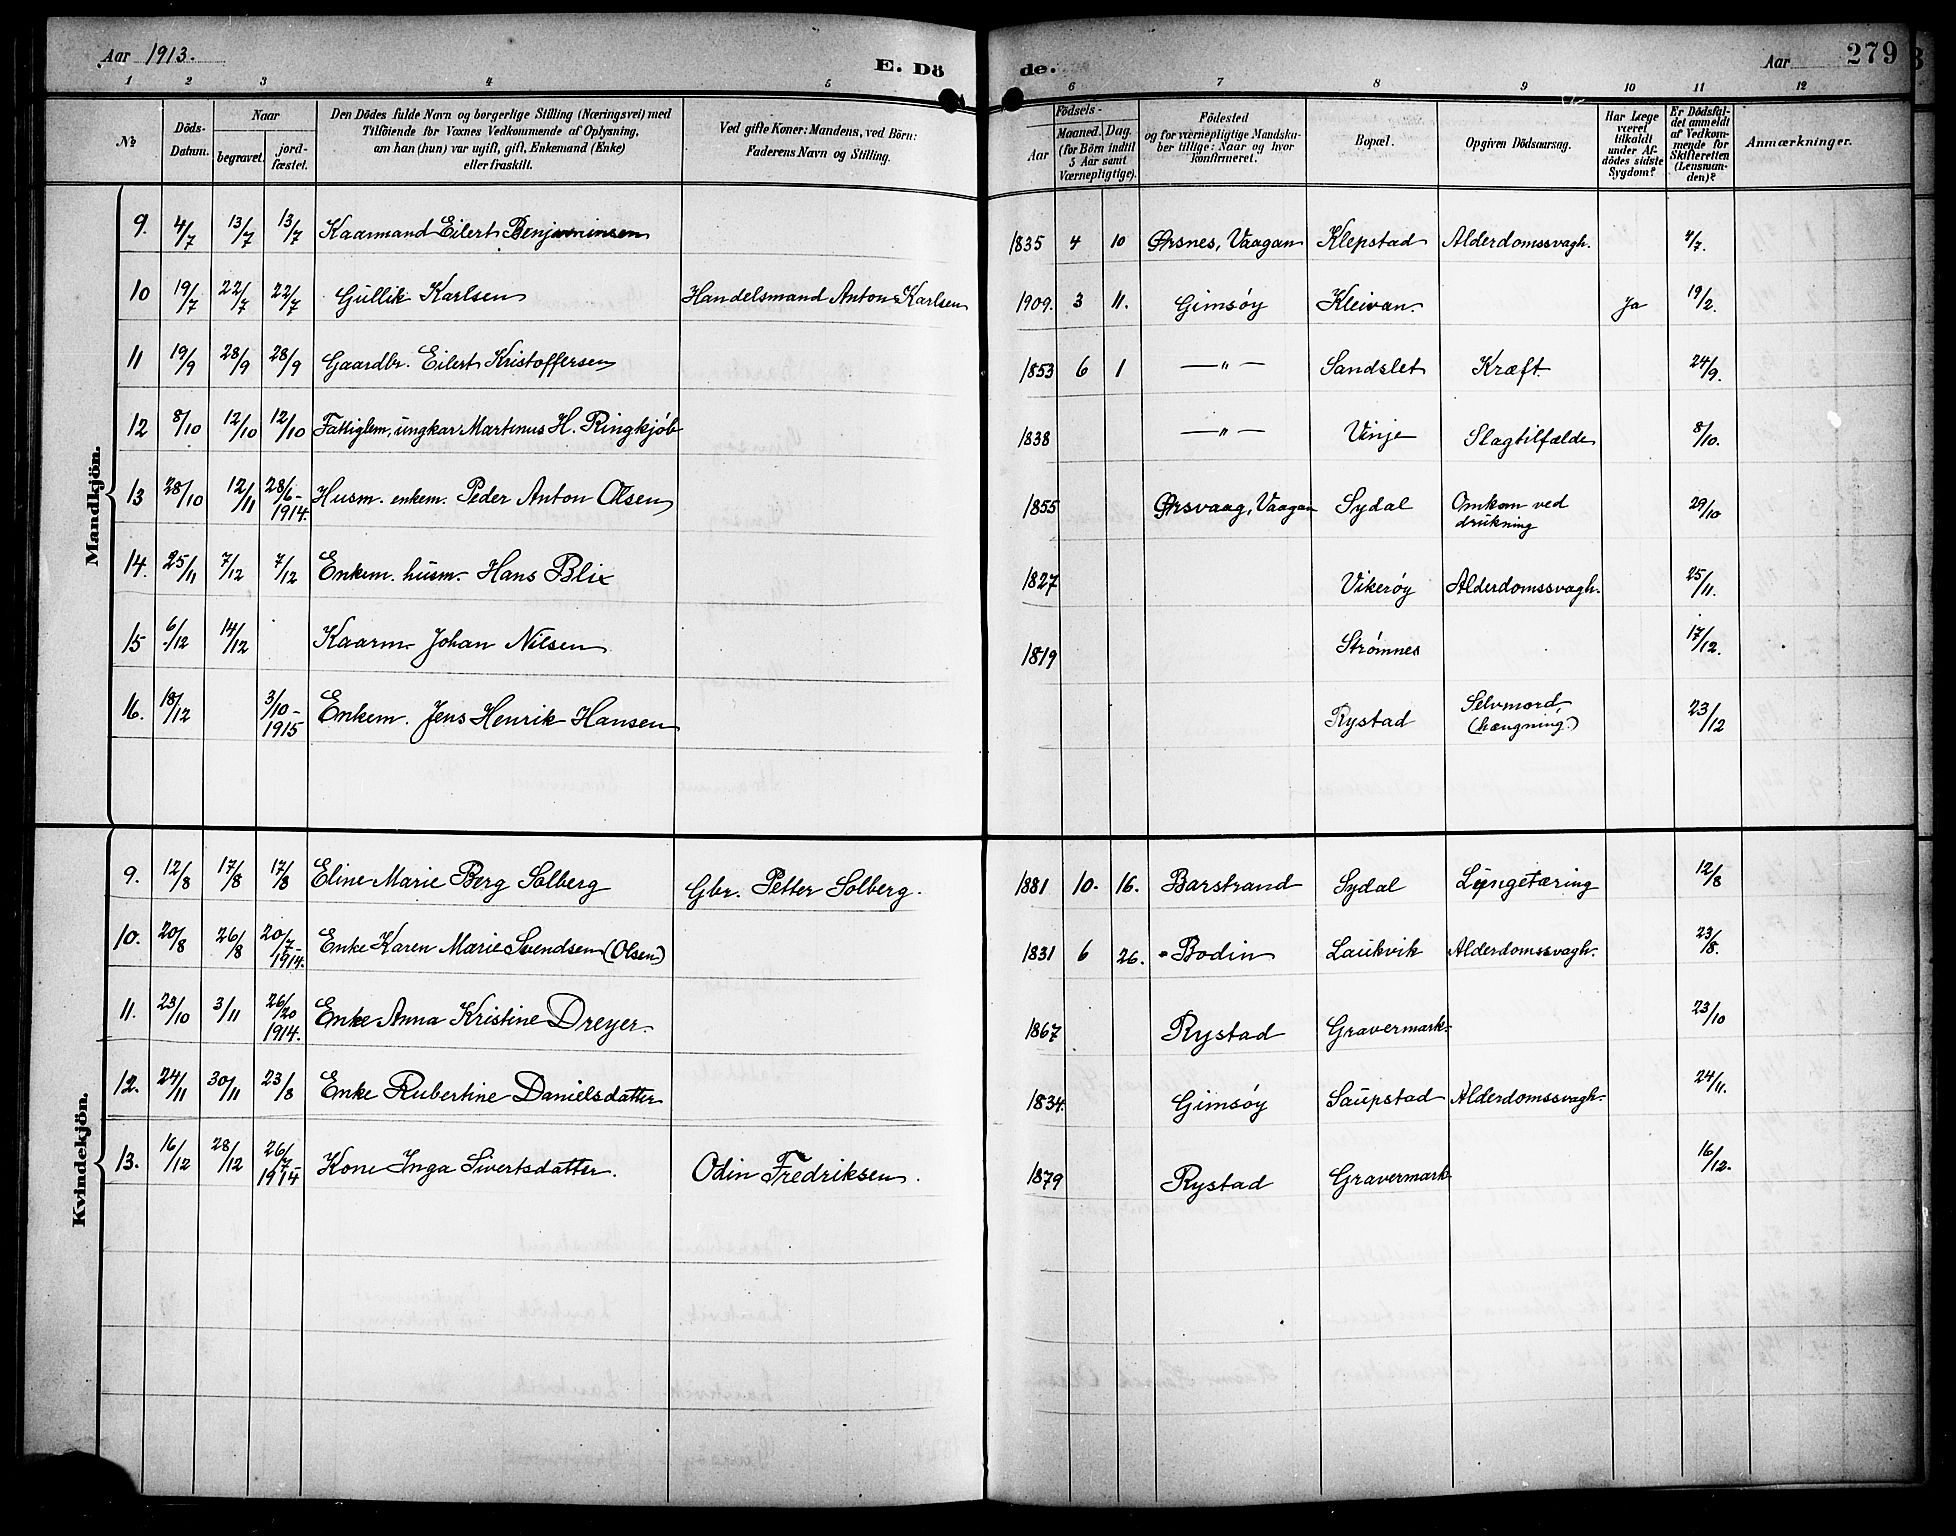 Aar 1913.
E. Döde.
Aar 279
1 2 3 4 5 6 7 8 9 10 11 12
№
Döds-Datum.
Naar
begravet.
jordfæstet.
Den Dödes fulde Navn og borgerlige Stilling (Næringsvei) med Tilföiende for Voxnes Vedkommende af Oplysning, om han (hun) var ugift, gift, Enkemand (Enke) eller fraskilt.
Ved gifte Koner: Mandens, ved Börn: Faderens Navn og Stilling.
Födsels-
Aar
Maaned. Dag.
(for Börn indtil 5 Aar samt Værnepligtige).
Födested og for værnepligtige Mandskaber tillige: Naar og hvor konfirmeret.
Bopæl.
Opgiven Dödsaarsag.
Har Læge været tilkaldt under Afdödes sidste Sygdom?
Er Dödsfaldet anmeldt af Vedkommende for Skifteretten (Lensmanden)?
Anmærkninger.
Mandkjön.
9. 4/7 13/7 13/7 Kaarmand Eilert Benjaminsen 1835 4 10 Ørsnes, Vaagan Klepstad Alderdomssvagh. 4/7.
10 19/7 22/7 22/7 Gullik Karlsen Handelsmand Anton Karlsen 1909. 3 11. Gimsøy Kleivan. Ja 19/2.
11 19/9 28/9 28/9 Gaardbr. Eilert Kristoffersen 1853 6 1 — " — Sandslet Kræft. 24/9.
12 8/10 12/10 12/10 Fattiglem, ungkar Martinus H. Ringkjøb 1838 — " — Vinje Slagtilfælde 8/10.
13 28/10 12/11 28/6-1914. Husm. enkem. Peder Anton Olsen 1855 Ørsvaag, Vaagan Sydal Omkom ved drukning 29/10
14. 25/11 7/12 7/12 Enkem. husm. Hans Blix 1827 Vikerøy Alderdomssvagh. 25/11.
15 6/12 14/12 Kaarm. Johan Nilsen 1819 Strømnes 17/12.
16. 18/12 3/10-1915 Enkem. Jens Henrik Hansen Rystad Selvmord (hængning.) 23/12
Kvindekjön.
9. 12/8 17/8 17/8 Eline Marie Berg Solberg Gbr. Petter Solberg. 1881 10. 16. Barstrand Sydal Lungetæring 12/8
10. 20/8 26/8 20/7-1914. Enke Karen Marie Svendsen (Olsen) 1831 6 26. Bodin Laukvik Alderdomssvagh. 23/8.
11. 23/10 3/11 26/20 1914. Enke Anna Kristine Dreyer. 1867 Rystad Gravermark. 23/10
12. 24/11 30/11 23/8 Enke Rubertine Danielsdatter 1834. Gimsøy Saupstad Alderdomssvagh. 24/11.
13. 16/12 28/12 26/7-1914 Kone Inga Sivertsdatter. Odin Fredriksen. 1879 Rystad Gravermark 16/12.